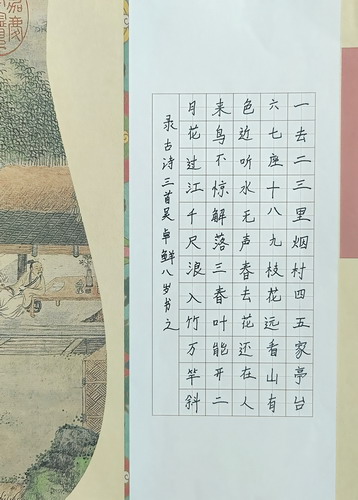 一去二三里烟村四五家亭台
六七座十八九枝花远看山有
色近听水无声春去花还在人
来鸟不惊解落三春叶能开二
月花过江千尺浪入竹万竿斜
录古诗三首吴卓鲜八岁书之